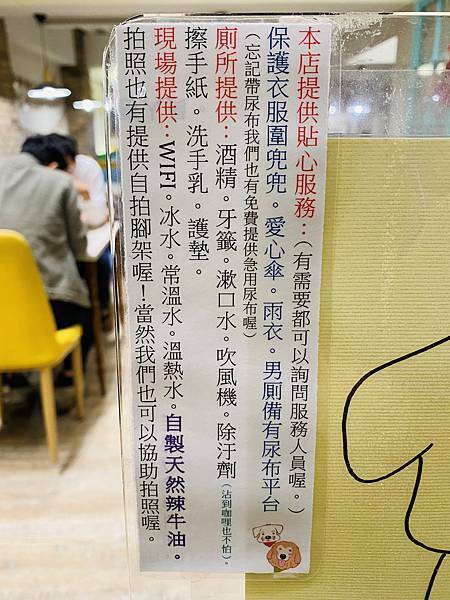 本店提供貼心服務：（有需要都可以詢問服務人員喔。）
保護衣服圍兜兜。愛心傘。雨衣。男廁備有尿布平台
（忘記帶尿布我們也有免費提供急用尿布喔）
廁所提供：酒精。牙籤。漱口水。吹風機。除汙劑（沾到咖哩也不怕）。
擦手紙。洗手乳。護墊。
現場提供：WIFI。冰水。常溫水。溫熱水。自製天然辣牛油。
拍照也有提供自拍腳架喔！當然我們也可以協助拍照喔。